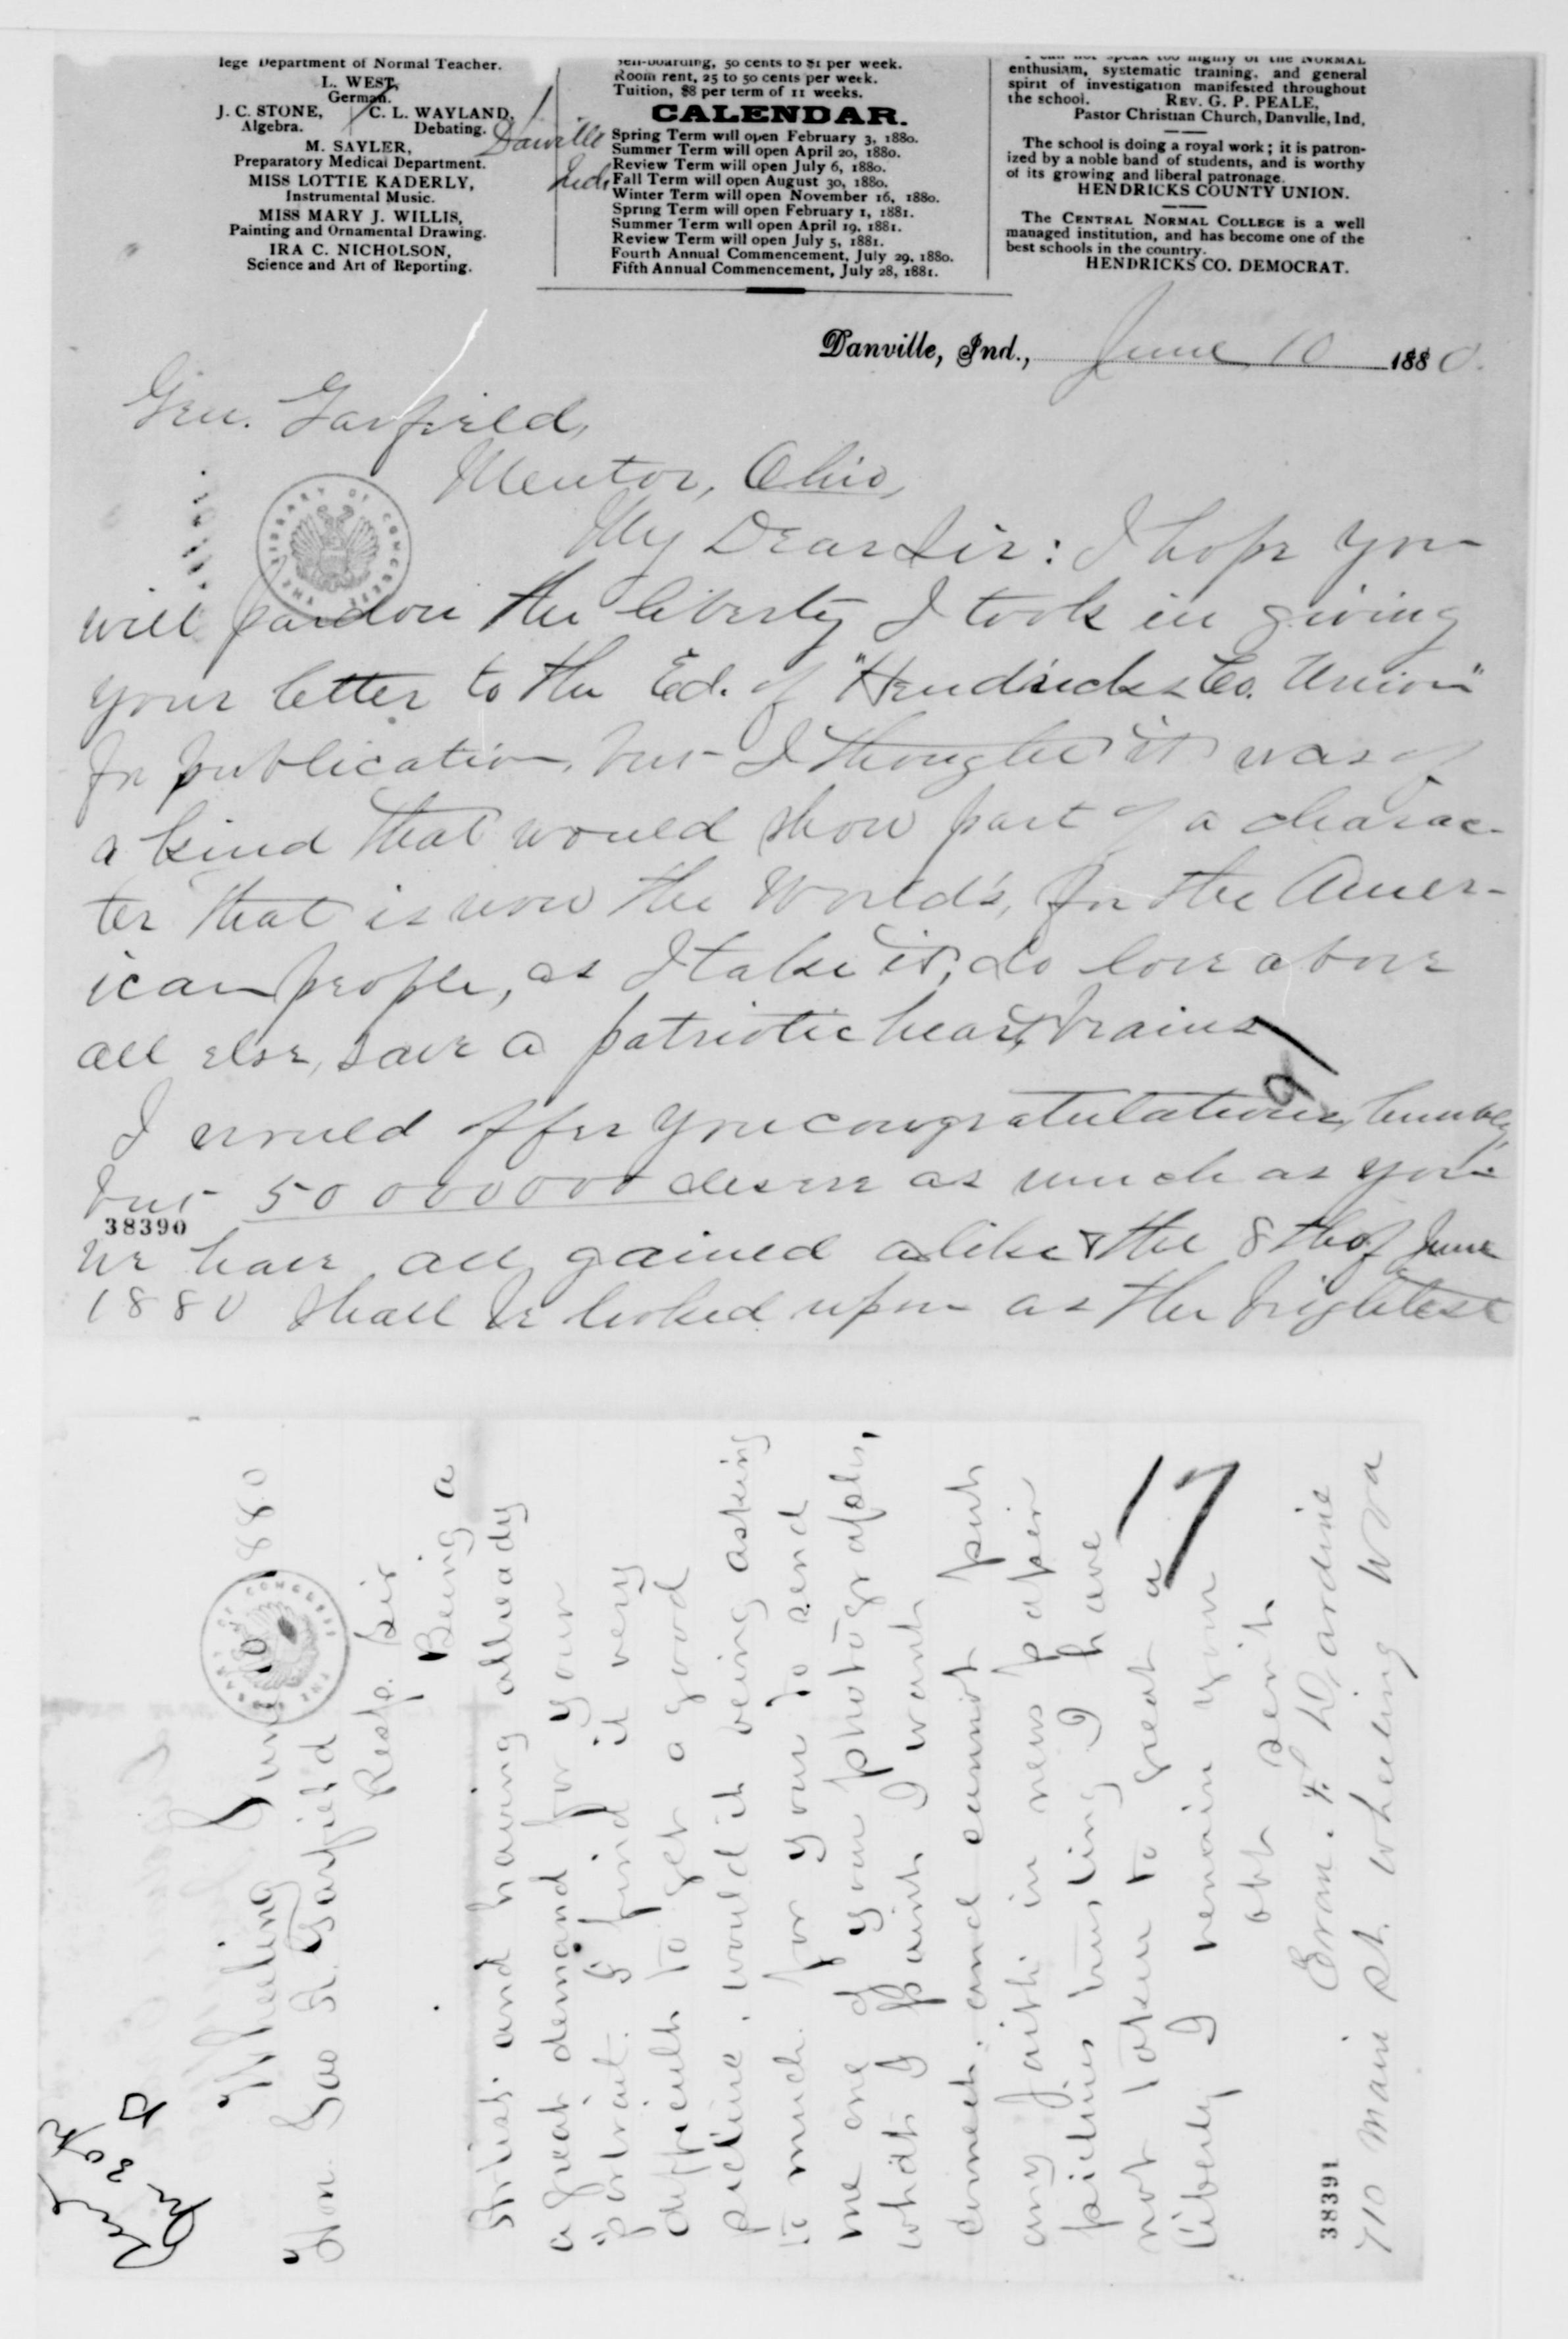 lege Department of Normal Teacher.
L. WEST,
German.
J. C. STONE, C. L. WAYLAND,
Algebra. Debating.
M. SAYLER,
Preparatory Medical Department.
MISS LOTTIE KADERLY,
Instrumental Music.
MISS MARY J. WILLIS,
Painting and Ornamental Drawing.
IRA C. NICHOLSON,
Science and Art of Reporting.
Danville
Ind.
Self-boarding, 50 cents to $1 per week.
Room rent, 25 to 50 cents per week.
Tuition, $8 per term of 11 weeks.
CALENDAR.
Spring Term will open February 3, 1880.
Summer Term will open April 20, 1880.
Review Term will open July 6, 1880.
Fall Term will open August 30, 1880.
Winter Term will open November 16, 1880.
Spring Term will open February 1, 1881.
Summer Term will open April 19, 1881.
Review Term will open July 5, 1881.
Fourth Annual Commencement, July 29, 1880.
Fifth Annual Commencement, July 28, 1881.
I can not speak too highly of the NORMAL
enthusiam, systematic training, and general
spirit of investigation manifested throughout
the school. REV. G. P. PEALE,
Pastor Christian Church, Danville, Ind,
The school is doing a royal work; it is patron-
ized by a noble band of students, and is worthy
of its growing and liberal patronage.
HENDRICKS COUNTY UNION.
The CENTRAL NORMAL COLLEGE is a well
managed institution, and has become one of the
best schools in the country.
HENDRICKS CO. DEMOCRAT.
Danville, Ind., June 10 1880.
Gen. Garfield,
Mentor, Ohio,
My Dear Sir: I hope you
will pardon the liberty I took in giving
your letter to the Ed. of "Hendricks Co. Union"
for publication, but I thought it was of
a kind that would show part of a charac-
ter that is now the World's, for the Amer-
ican people, as I take it, do love above
all else, save a patriotic heart, brains
I would offer you congratulations, humbly,
but 50 000 000 deserve as much as you
38390
We have all gained alike & the 8th of June
1880 shall be looked upon as the brightest
THE LIBRARY OF CONGRESS
Wheeling June 10 1880
Hon. Gas A. Garfield
Resp. Sir
Being a
Artist. and having allready
a great demand for your
portrait. I find it very
difficult to get a good
picture. would it being asking
to much. for your to send
me one of your photographs,
what I paint I want
correct. and cannot put
any faith in news paper
pictures trusting I have
not taken to great a
liberty I remain your
obt servt
Eram. F. Dardine
710 Main St. Wheeling W Va
38391
17
THE LIBRARY OF CONGRESS